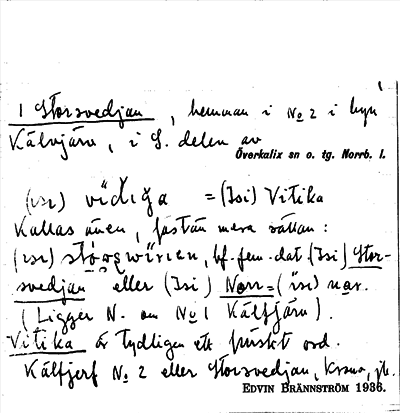 1 Storsvedjan, hemman i No 2 i byn
Kälvjärv, i S. delen av
Överkalix sn o. tg. Norrb. l.
vidiga = (Isi) Vitika
Kallas även, fastän mera sällan:
bf. fem. dat. (Isi) Stor-
svedjan eller (Isi) Norr=(isi) nar.
(Ligger N. om No 1 Kälfjärv).
Vitika är tydligen ett finskt ord.
Kälfjerf No 2 eller Storsvedjan, krono, jb.
EDVIN BRÄNNSTRÖM 1936.